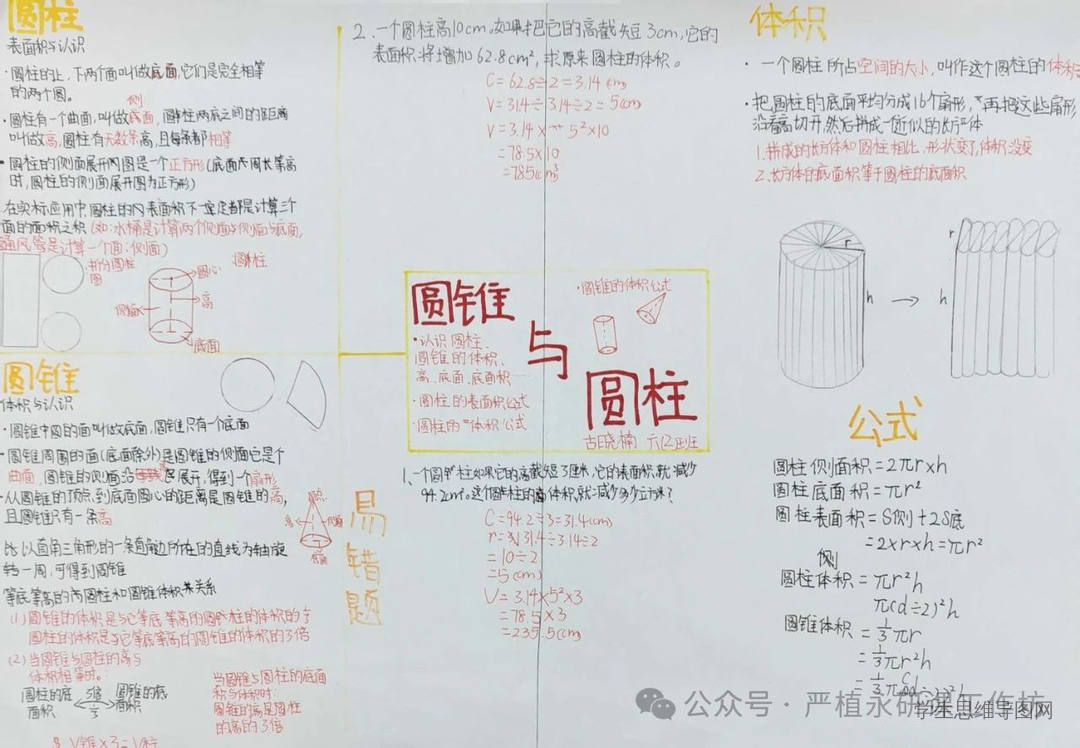 圆柱
表面积与认识
·圆柱的上,下两个面叫做底面,它们是完全相等
的两个圆。
侧
·圆柱有一个曲面,叫做底面,圆柱两底之间的距离
叫做高,圆柱有无数条高,且每条都相等
·圆柱的侧面展开图是一个正方形(底面周长等高
时,圆柱的侧面展开图为正方形)
在实际应用中,圆柱的表面积不一定都是计算三个
面的面积之积(如:水桶是计算两个侧面与底面,
通风管是计算一个面:侧面)
拆分圆柱
图
圆心
圆柱
侧面
高
底面
圆锥
体积与认识
·圆锥中圆的面叫做底面,圆锥只有一个底面
·圆锥周围的面(底面除外)是圆锥的侧面它是个
曲面,圆锥的侧面沿展开,得到一个扇形
·从圆锥的顶点到底面圆心的距离是圆锥的高,
且圆锥只有一条高
以直角三角形的一条直角边所在的直线为轴旋
转一周,可得到圆锥
等底等高的圆柱和圆锥体积关系
(1)圆锥的体积是与它等底等高的圆柱的体积的⅓
圆柱的体积是与它等底等高的圆锥的体积的3倍
(2)当圆锥与圆柱的高与
体积相等时:
圆柱的底 3倍 圆锥的底
面积 ⅓ 面积
当圆锥与圆柱的底面
积与体积时:
圆锥的高是圆柱
的高的3倍
V锥×3=V柱
2.一个圆柱高10cm,如果把它的高截短3cm,它的
表面积将增加62.8cm²,求原来圆柱的体积。
C=62.8÷2=3.14(cm)
V=314÷3.14÷2=5(cm)
V=3.14×5²×10
=78.5×10
=785(cm³)
圆锥
与
圆柱
·认识圆柱、
圆锥的体积、
高、底面、底面积……
·圆柱的表面积公式
·圆柱的"体积"公式
·圆锥的体积公式
古晓楠 六(2)班
易
错
题
1、一个圆柱如果它的高截短3厘米,它的表面积就减少
94.2cm²。这个圆柱的体积就减少多少立方米?
C=94.2÷3=31.4(cm)
r=31.4÷3.14÷2
=10÷2
=5(cm)
V=3.14×5²×3
=78.5×3
=235.5(cm)
体积
·一个圆柱所占空间的大小,叫作这个圆柱的体积
·把圆柱的底面平均分成16个扇形,再把这些扇形
沿着高切开,然后拼成一近似的长方体
1.拼成的长方体和圆柱相比,形状变了,体积没变
2.长方体的底面积等于圆柱的底面积
r
h
r
h
公式
圆柱侧面积=2πr×h
圆柱底面积=πr²
圆柱表面积=S侧+2S底
=2×r×h=πr²
侧
圆柱体积=πr²h
π(d÷2)²h
圆锥体积=⅓πr
=⅓πr²h
公众号·严植永研
学生思维导图网